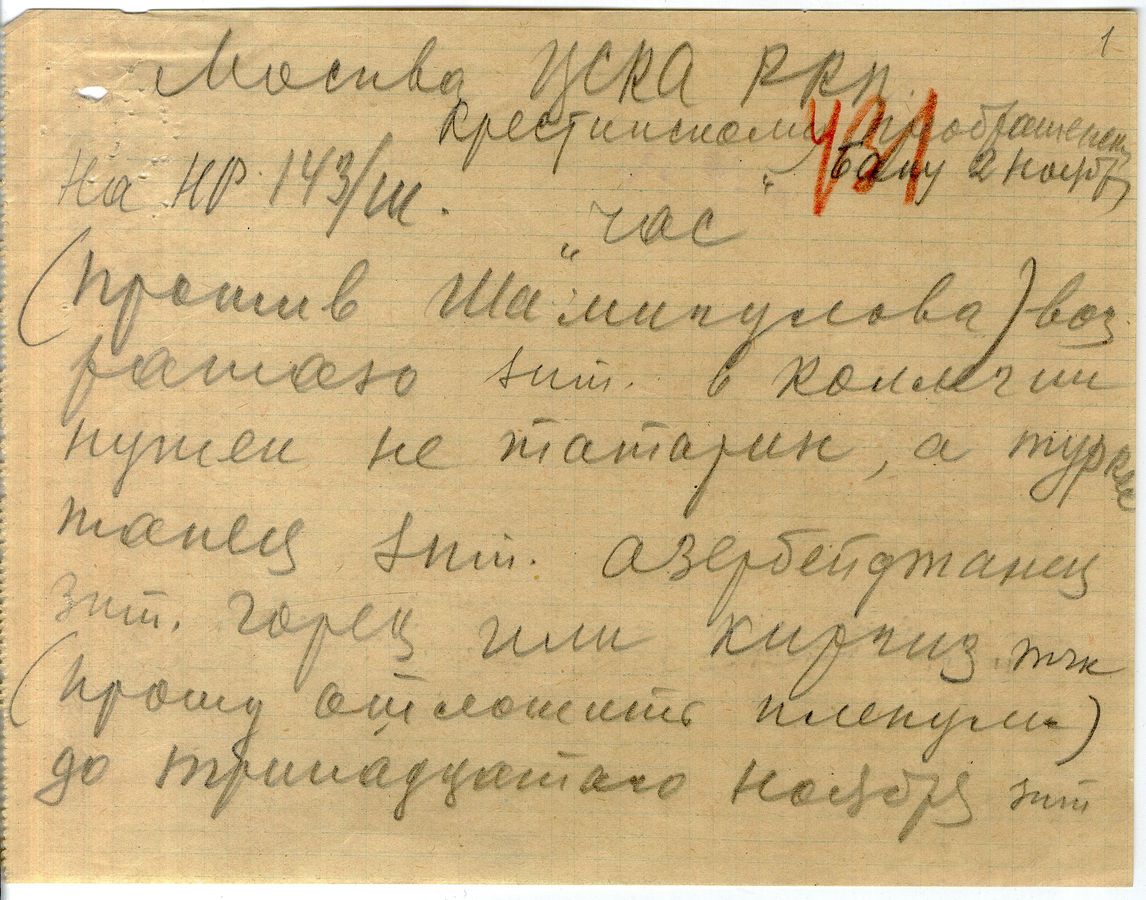 1
Москва ЦСКА РКП.
Крестинскому
431
Баку 2 ноябр
На НР. 143/ш.
"час"
(против Шамигулова) воз
ражаю зпт. в коллегии
нужен не татарин, а туркес
танец зпт. азербейджанец
зпт. горец или киргиз тчк
(Прошу отложить пленум)
до тринадцатого ноября зпт